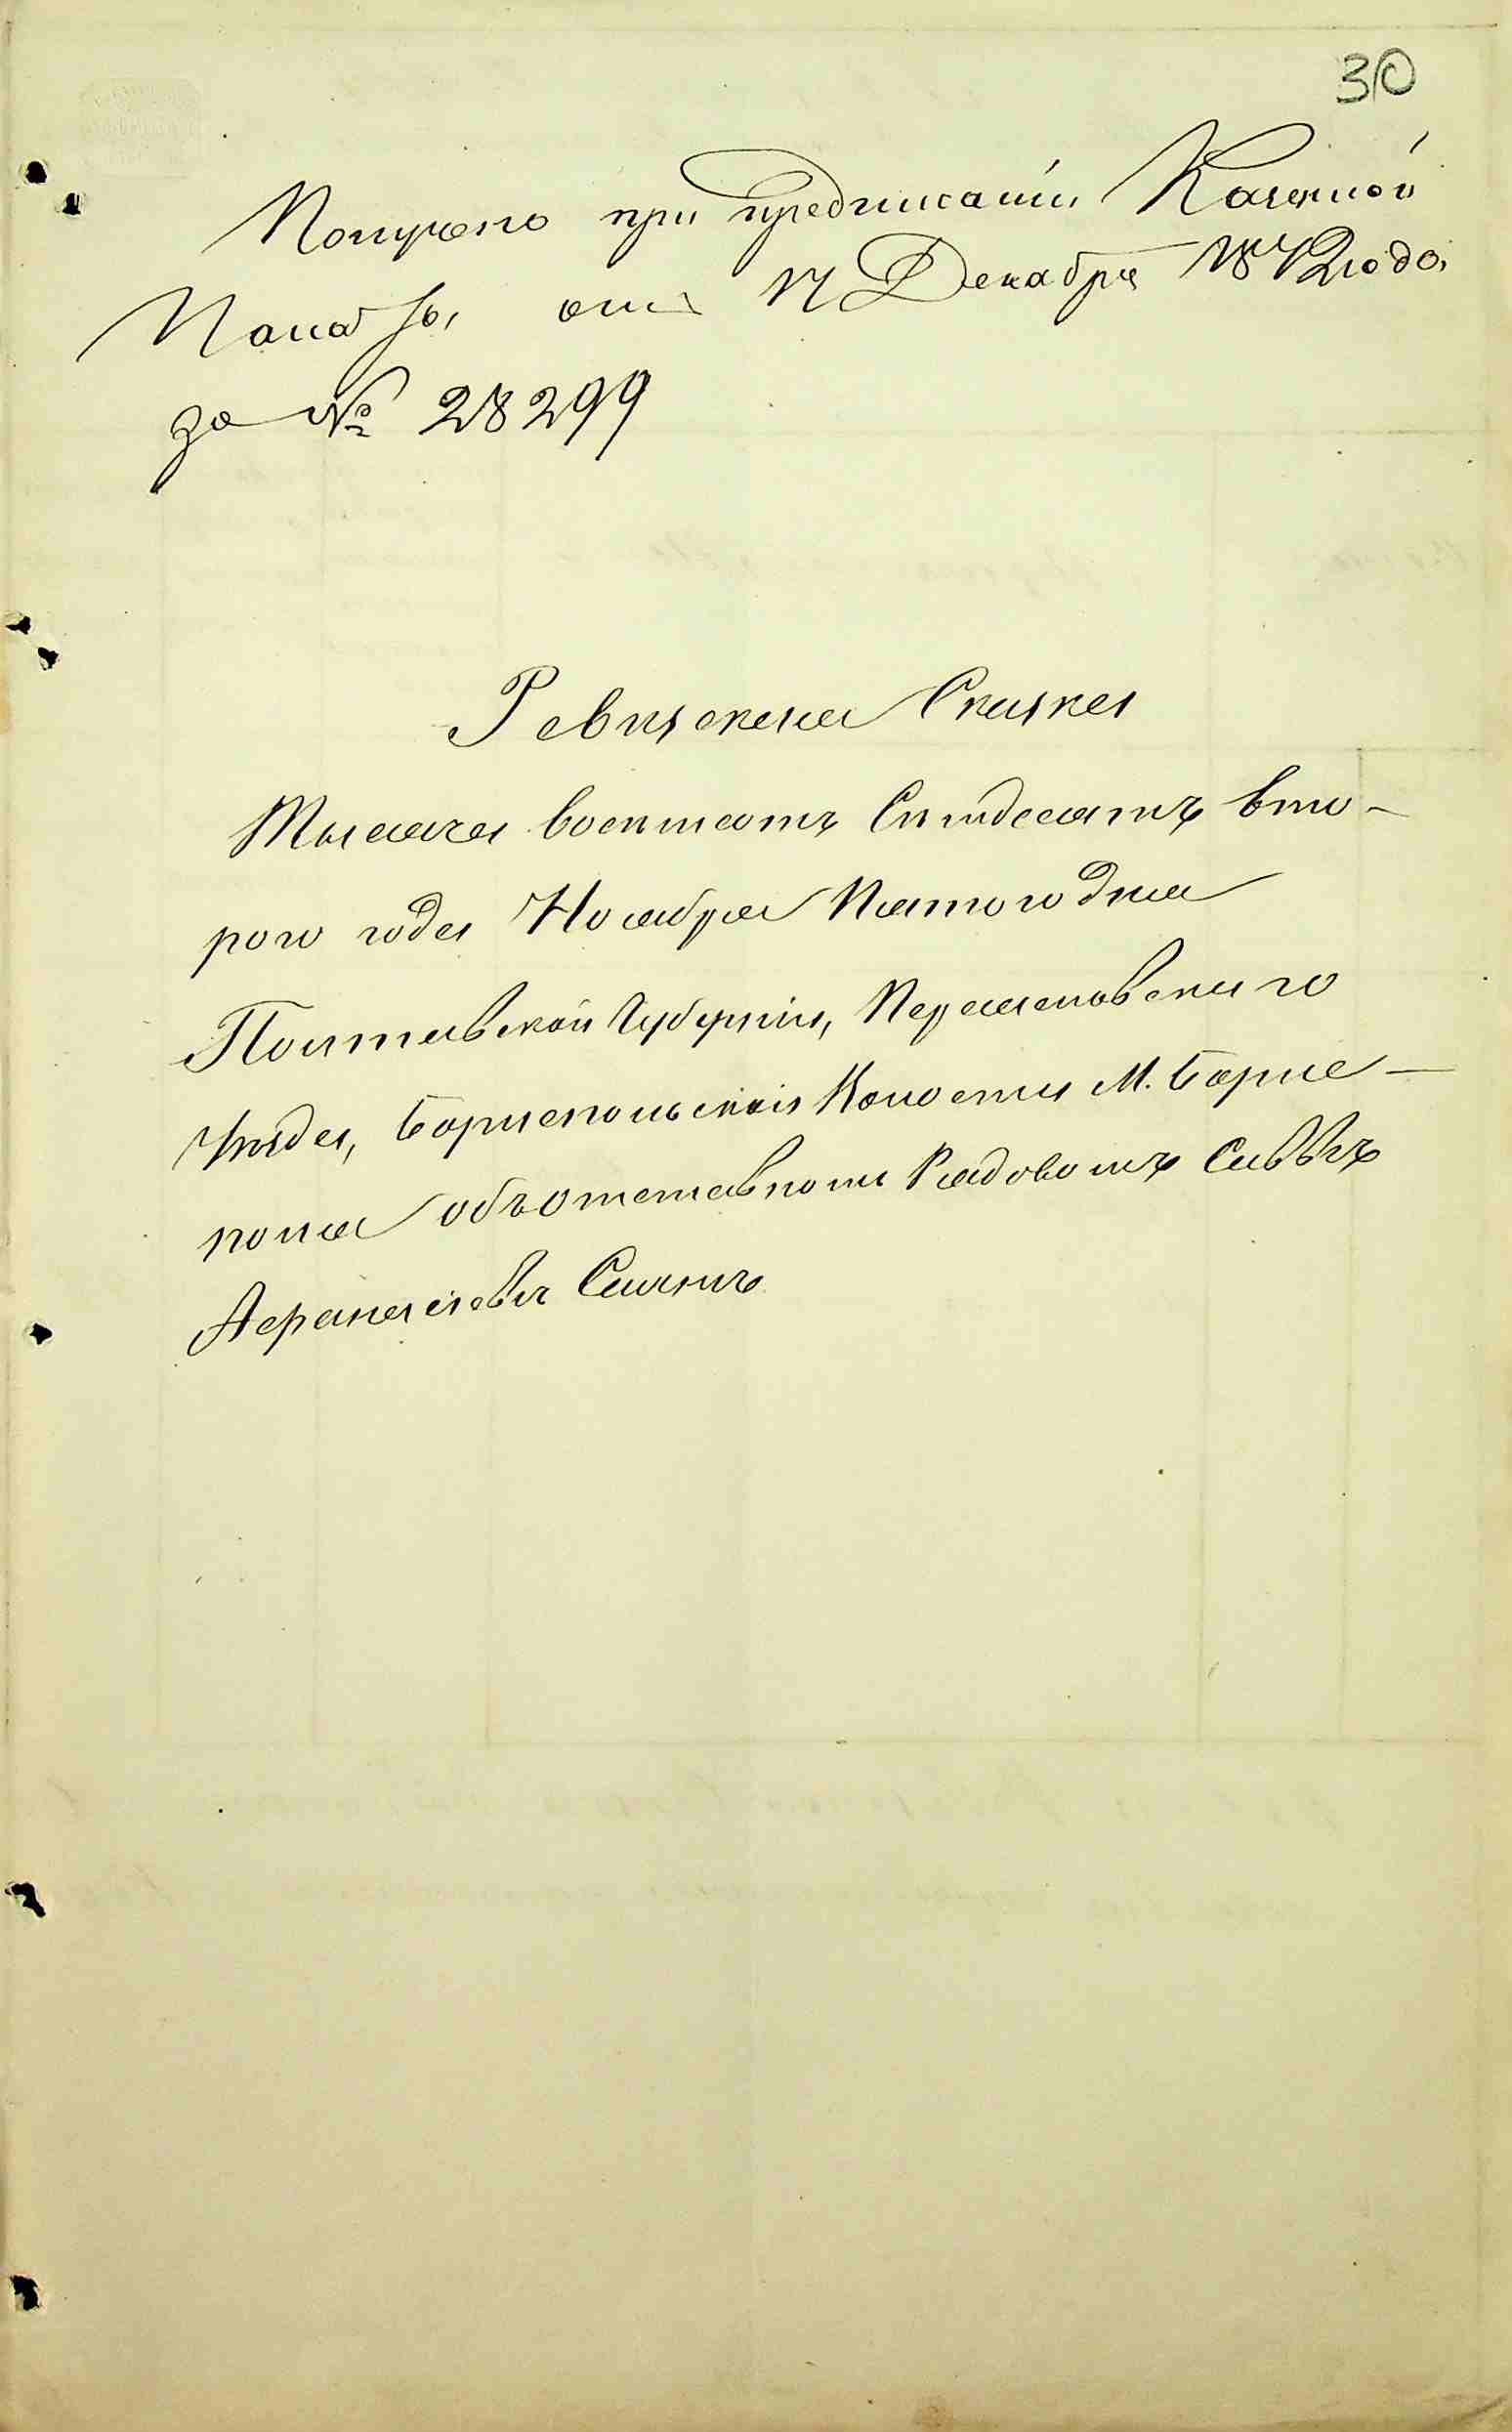 30
Получено при предписаніи Казенной
Палаты, отъ 17 Декабря 1872 года
за № 28299
Ревизская Сказка
Тысяча восемсотъ Семдесятъ вто-
рого года Ноября Пятого дня
Полтавской Губерніи, Переяславского
Уѣзда, Бориспольской Волости М. Борис-
поля объ отставномъ Рядовомъ Саввѣ
Афанасіевѣ